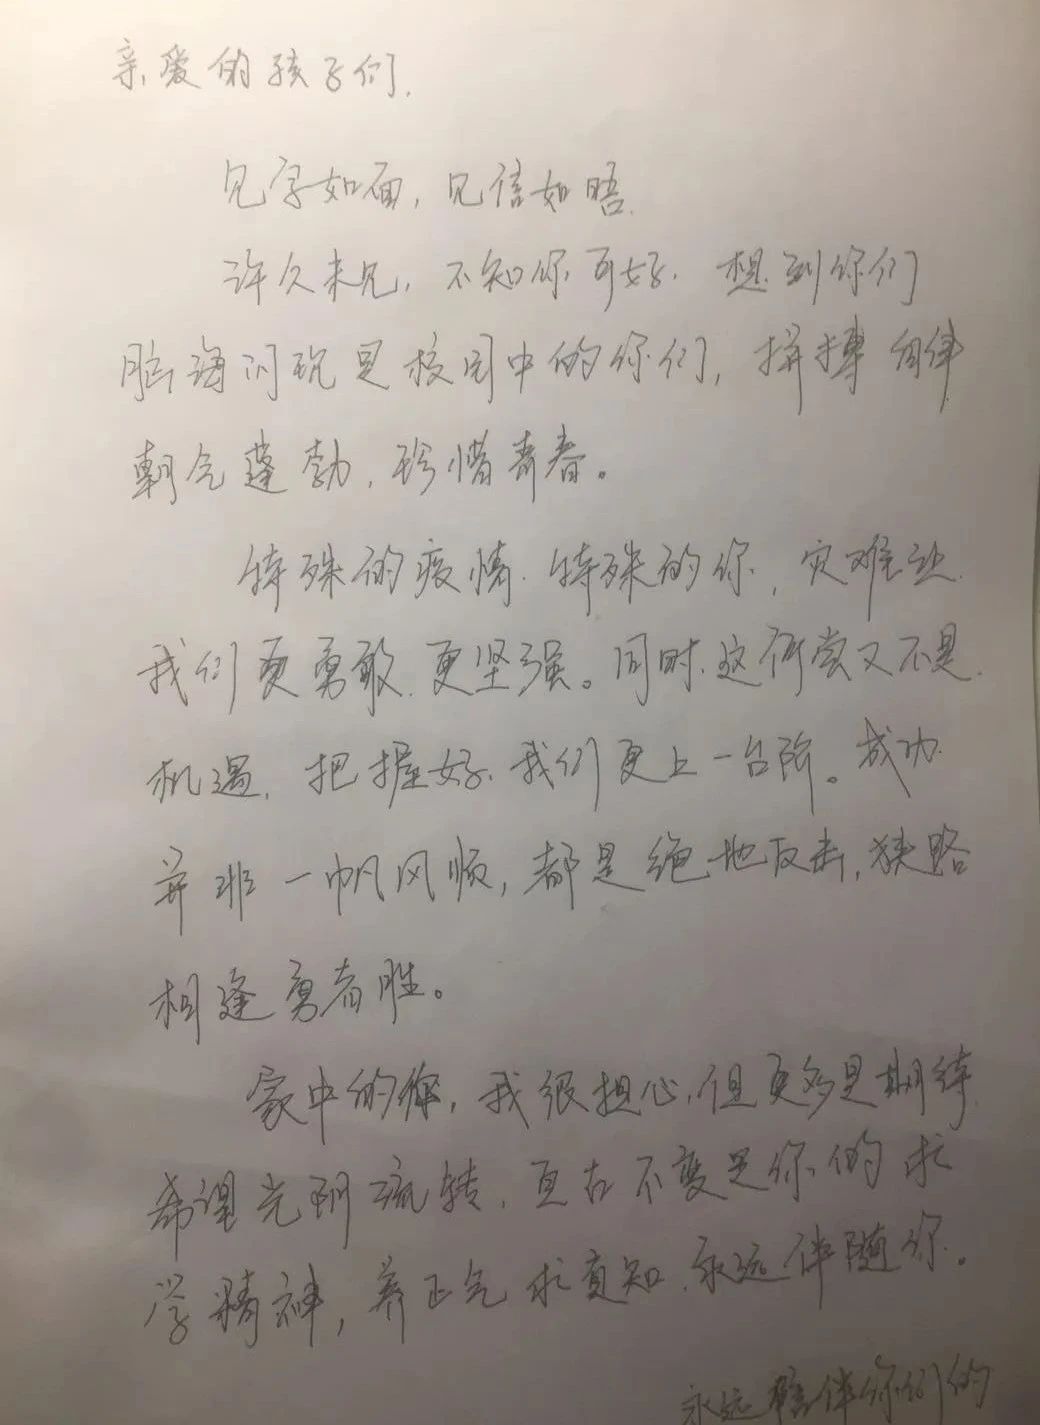 亲爱的孩子们,
见字如面,见信如晤.
许久未见,不知你可好.想到你们
脑海闪现是校园中的你们,拼搏
朝气蓬勃,珍惜青春。
特殊的疫情.特殊的你,灾难让
我们更勇敢.更坚强。同时,这何尝又不是
机遇,把握好,我们更上一台阶。成功
并非一帆风顺,都是绝地反击,狭路
相逢勇者胜。
家中的你,我很担心,但更多是期待
希望光阴流转,亘古不变是你的求
学精神,养正气求真知,永远伴随你。
永远陪伴你们的